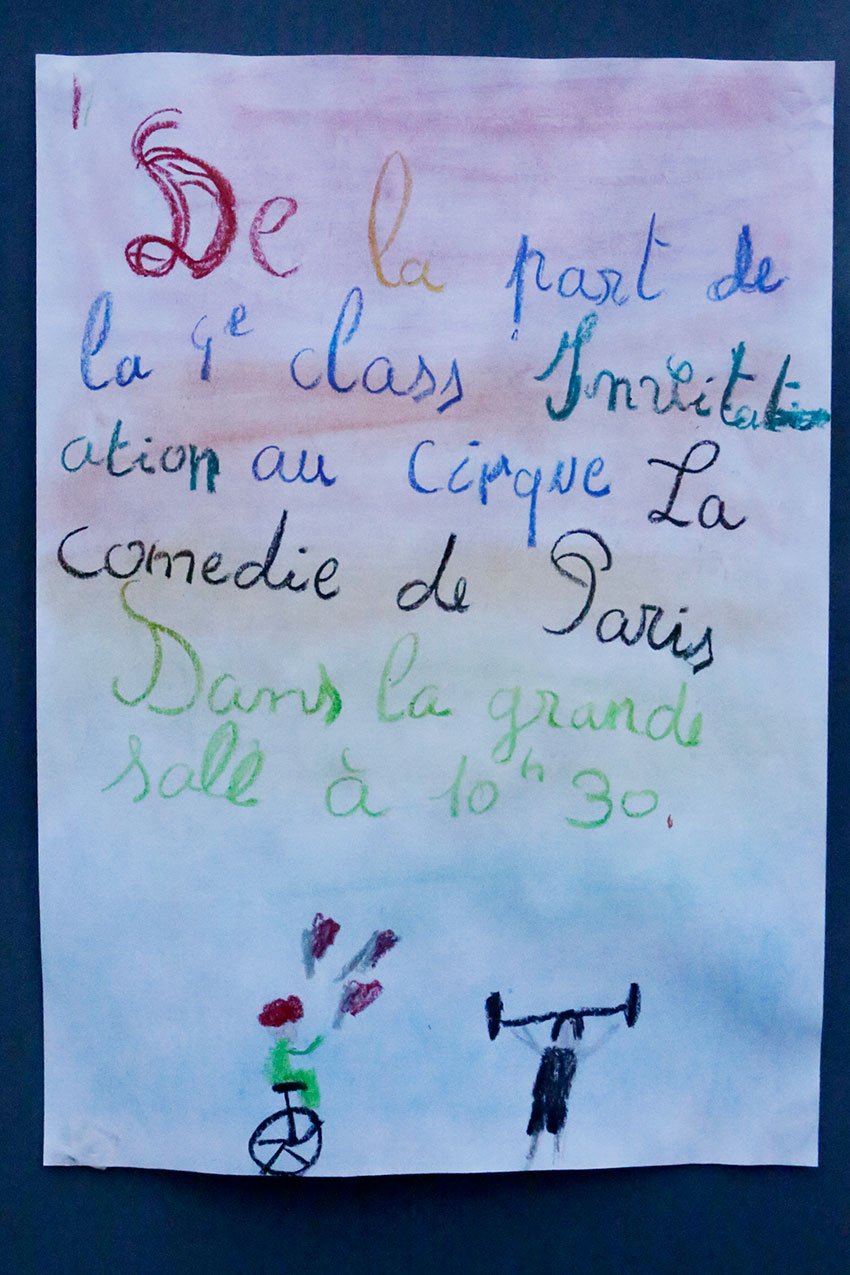 De la part de
la 4e class Invitati
ation au cirque La
comedie de Paris
Dans la grande
salle à 10h 30.